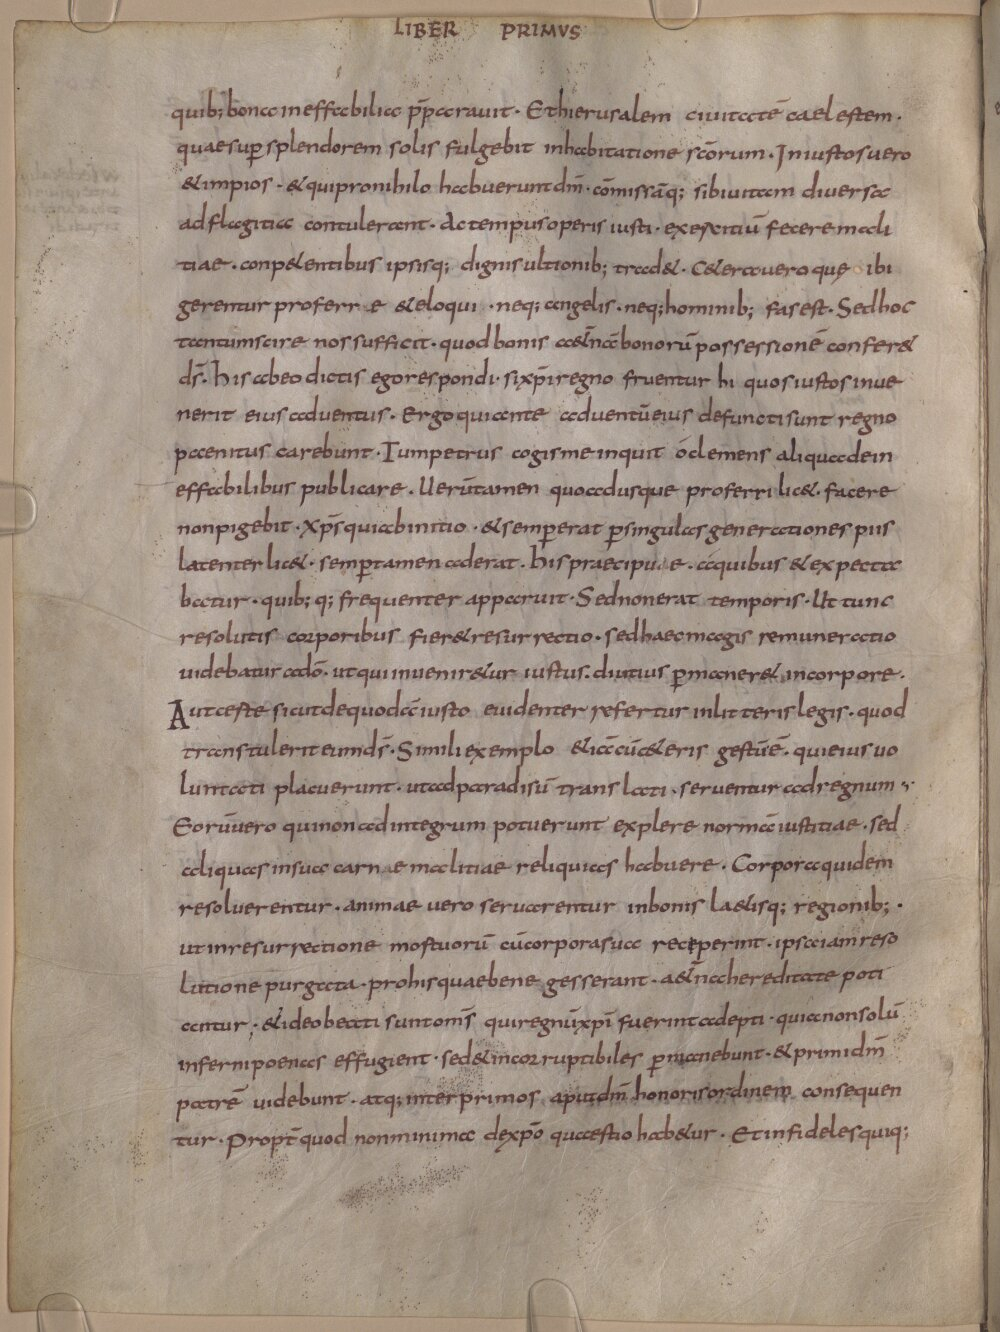 LIBER PRIMVS
quib; bona ineffabilia p̄parauit · Et hierusalem ciuitatē caelestem ·
quae sup splendorem solis fulgebit inhabitatione scōrum · Iniustos uero
& impios · & qui pro nihilo habuerunt dm̄ · cōmissāq; sibi uitam diuersa
ad flagitia contulerant · Ac tempus operis iusti · exercitiū fecere mali
tiae · conpetentibus ipsisq; dignis ultionib; trad& · C&era uero quę ibi
gerentur proferre & eloqui · neq; angelis · neq; hominib; fas est · Sed hoc
tantum scire nos sufficit · quod bonis a&ernā bonorū possessionē confer&
ds̄ · His ab eo dictis ego respondi · si xp̄i regno fruentur hi quos iustos inue
nerit eius aduentus · Ergo qui ante aduentū eius defuncti sunt regno
paenitus carebunt · Tum petrus cogis me inquit ó clemens aliqua de in
effabilibus publicare · Uerūtamen quoadusque proferri lic& · facere
non pigebit · Xps̄ qui ab initio · & semper erat per singulas generationes piis
latenter lic& · semper tamen aderat · His praecipuae · a quibus & expecta
batur · quib; q; frequenter apparuit · Sed non erat temporis · Ut tunc
resolutis corporibus fier& resurrectio · sed haec magis remuneratio
uidebatur a dō · ut qui inuenir&ur iustus · diutius perman&er& in corpore ·
Aut certe sicut de quodā iusto euidenter refertur in litteris legis · quod
transtulerit eum ds̄ · Simili exemplo & iā cū c&eris gestū ē · qui eius uo
luntati placuerunt · ut ad paradisū translati · seruentur ad regnum ·
Eorū uero qui non ad integrum potuerunt explere normā iustitiae · sed
aliquas in sua carne malitiae reliquias habuere · Corpora quidem
resoluerentur · animae uero seruarentur in bonis la&isq; regionib; ·
ut in resurrectione mortuorū cū corpora sua receperint · ipsa iam reso
lutione purgata · pro his quae bene gesserant · a&erna hereditate poti
antur · & ideo beati sunt om̄s qui regnū xp̄i fuerint adepti · quia non solū
inferni poenas effugient · sed & incorruptibiles permanebunt · & primi dm̄
patrē uidebunt · atq; inter primos aput dm̄ honoris ordinem consequen
tur · Propt̄ quod non minima de xp̄o quaestio hab&ur · Et infideles quiq;